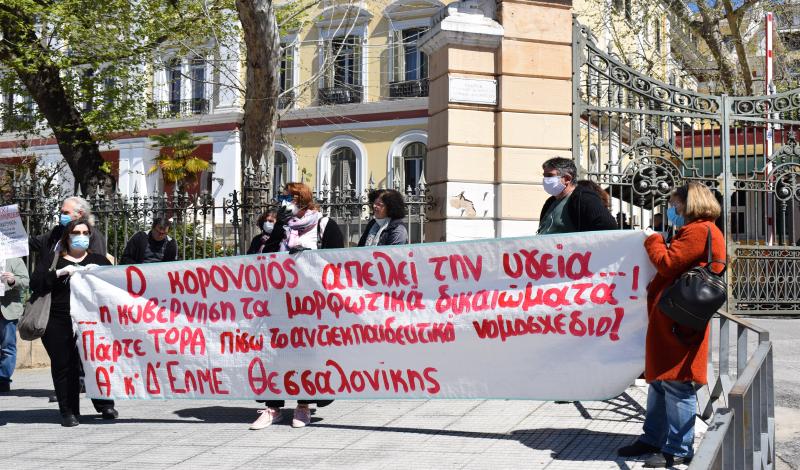 Ο κορονοϊός απειλεί την υγεία...
... η κυβέρνηση τα μορφωτικά δικαιώματα!
Πάρτε ΤΩΡΑ πίσω το αντιεκπαιδευτικό νομοσχέδιο!
Α' κ' Δ' ΕΛΜΕ Θεσσαλονίκης